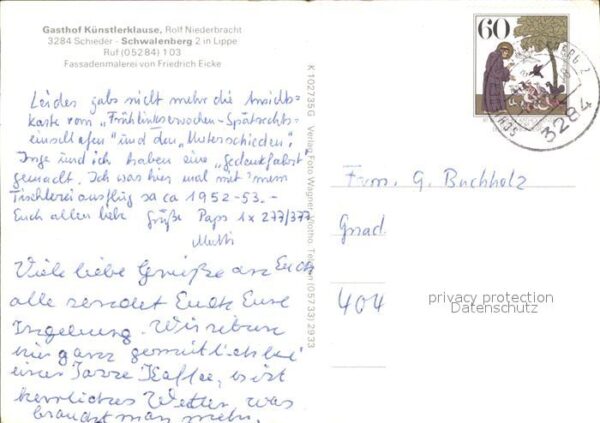 Gasthof Künstlerklause, Rolf Niederbracht
3284 Schieder - Schwalenberg 2 in Lippe
Ruf (05284) 103
Fassadenmalerei von Friedrich Eicke
Leider gabs nicht mehr die Ansichts-
karte vom „Frühlinkserwachen - Spätrechts-
einschlafen" und den „Unterschieden".
Inge und ich haben eine „Gedenkfahrt"
gemacht. Ich war hier mal mit 'nem
Tischlereiausflug so ca 1952-53.-
Euch allen liebe Grüße Paps 1x 277/377
Mutti
Viele liebe Grüße an Euch
alle sendet Euch Eure
Ingeburg. Wir sitzen
hier ganz gemütlich bei
einer Tasse Kaffee, es ist
herrliches Wetter, was
braucht man mehr.
K 102735G Verlag Foto Wagner, Vlotho, Telefon (05733) 2933
60
3284
Fam. G. Buchholz
404
privacy protection
Datenschutz